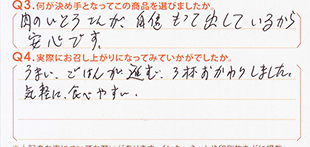 Q3.何が決め手となってこの商品を選びましたか。
肉のいとうさんが自信もって出しているから
安心です。
Q4.実際にお召し上がりになってみていかがでしたか。
うまい、ごはんが進む、3杯おかわりしました。
気軽に、食べやすい。